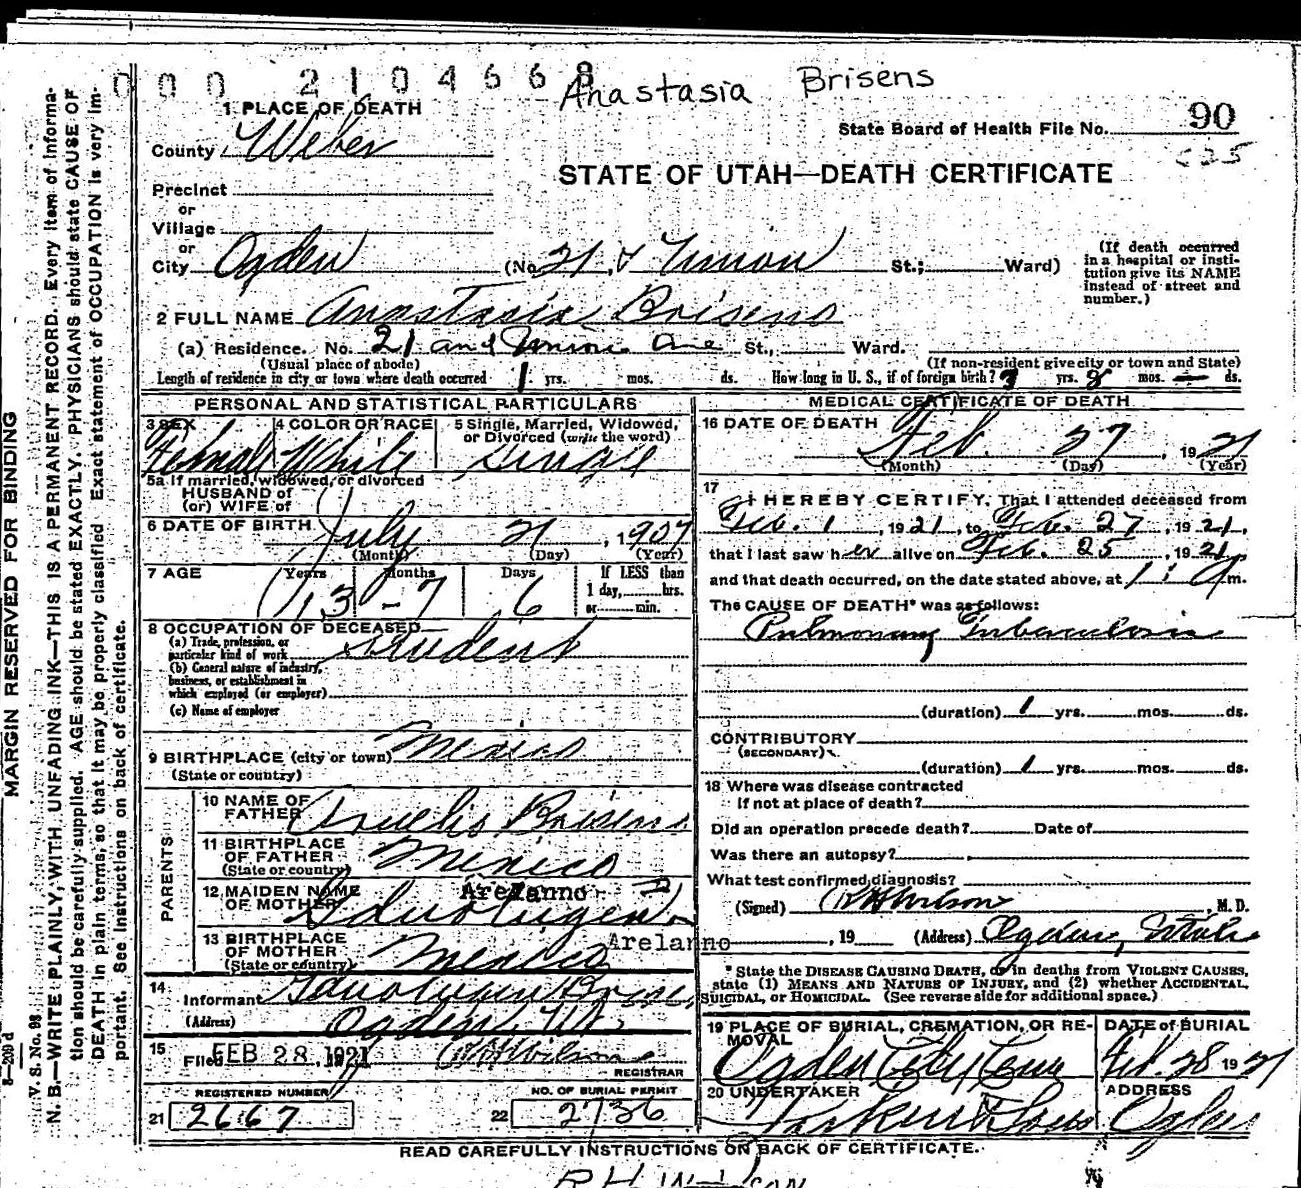 0 0 0 2 1 0 4 6 6 8
Anastasia Brisens
1 PLACE OF DEATH
County Weber
State Board of Health File No. 90
STATE OF UTAH—DEATH CERTIFICATE
Precinct
or
Village
or
City Ogden (No. 21 & Union St.; Ward)
(If death occurred
in a hospital or insti-
tution give its NAME
instead of street and
number.)
2 FULL NAME Anastasia Brisens
(a) Residence. No. 21 and Union Ave St., Ward.
(Usual place of abode) (If non-resident give city or town and State)
Length of residence in city or town where death occurred 1 yrs. mos. ds. How long in U. S., if of foreign birth? 3 yrs. 8 mos. — ds.
PERSONAL AND STATISTICAL PARTICULARS
3 SEX 4 COLOR OR RACE 5 Single, Married, Widowed,
or Divorced (write the word)
Female White Single
5a If married, widowed, or divorced
HUSBAND of
(or) WIFE of
6 DATE OF BIRTH July 21, 1907
(Month) (Day) (Year)
7 AGE Years Months Days If LESS than
1 day, hrs.
or min.
13 - 7 6
8 OCCUPATION OF DECEASED
(a) Trade, profession, or
particular kind of work Student
(b) General nature of industry,
business, or establishment in
which employed (or employer)
(c) Name of employer
9 BIRTHPLACE (city or town) Mexico
(State or country)
PARENTS
10 NAME OF
FATHER Brisens
11 BIRTHPLACE
OF FATHER Mexico
(State or country)
12 MAIDEN NAME Arelanno
OF MOTHER
13 BIRTHPLACE Arelanno
OF MOTHER Mexico
(State or country)
14
Informant
(Address) Ogden, Ut.
15
Filed FEB 28, 1921 R H Wilson
REGISTRAR
REGISTERED NUMBER NO. OF BURIAL PERMIT
21 2667 22 2736
MEDICAL CERTIFICATE OF DEATH
16 DATE OF DEATH
Feb. 27, 1921
(Month) (Day) (Year)
17
I HEREBY CERTIFY, That I attended deceased from
Feb. 1, 1921, to Feb. 27, 1921,
that I last saw her alive on Feb. 25, 1921,
and that death occurred, on the date stated above, at m.
The CAUSE OF DEATH* was as follows:
Pulmonary Tuberculosis
(duration) 1 yrs. mos. ds.
CONTRIBUTORY
(SECONDARY)
(duration) 1 yrs. mos. ds.
18 Where was disease contracted
If not at place of death?
Did an operation precede death? Date of
Was there an autopsy?
What test confirmed diagnosis?
(Signed) R H Wilson, M. D.
, 19 (Address) Ogden, Utah
* State the DISEASE CAUSING DEATH, or in deaths from VIOLENT CAUSES,
state (1) MEANS AND NATURE OF INJURY, and (2) whether ACCIDENTAL,
SUICIDAL, or HOMICIDAL. (See reverse side for additional space.)
19 PLACE OF BURIAL, CREMATION, OR RE-
MOVAL
DATE of BURIAL
Ogden City Cem Feb. 28 1921
20 UNDERTAKER ADDRESS
Ogden
READ CAREFULLY INSTRUCTIONS ON BACK OF CERTIFICATE.
MARGIN RESERVED FOR BINDING
8—209 d
V. S. No. 98
N. B.—WRITE PLAINLY, WITH UNFADING INK—THIS IS A PERMANENT RECORD. Every item of informa-
tion should be carefully supplied. AGE should be stated EXACTLY. PHYSICIANS should state CAUSE OF
DEATH in plain terms, so that it may be properly classified. Exact statement of OCCUPATION is very im-
portant. See instructions on back of certificate.